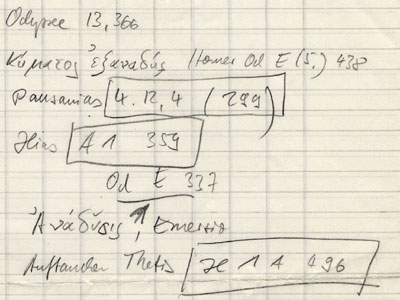 Odyssee 13,366
Κύματος ἐξαναδύς Homer Od E (5.) 438
Pausanias 4.12,4 (299)
Ilias A 1 359
Od E 337
Ἀνάδυσις,
Auftauchen Thetis Il 1 A 496